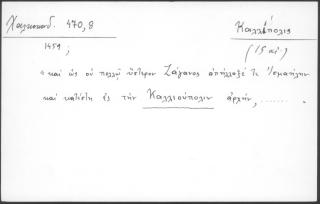 Χαλκοκονδ. 470,8
Καλλιόπολις
1459;
(15 αἰ.)
"καὶ ὡς οὐ πολλῷ ὕστερον Ζάγανος ἀπήλλαξέ τε Ἰσμαήλην
καὶ κατέστη ἐς τὴν Καλλιούπολιν ἀρχήν, .......